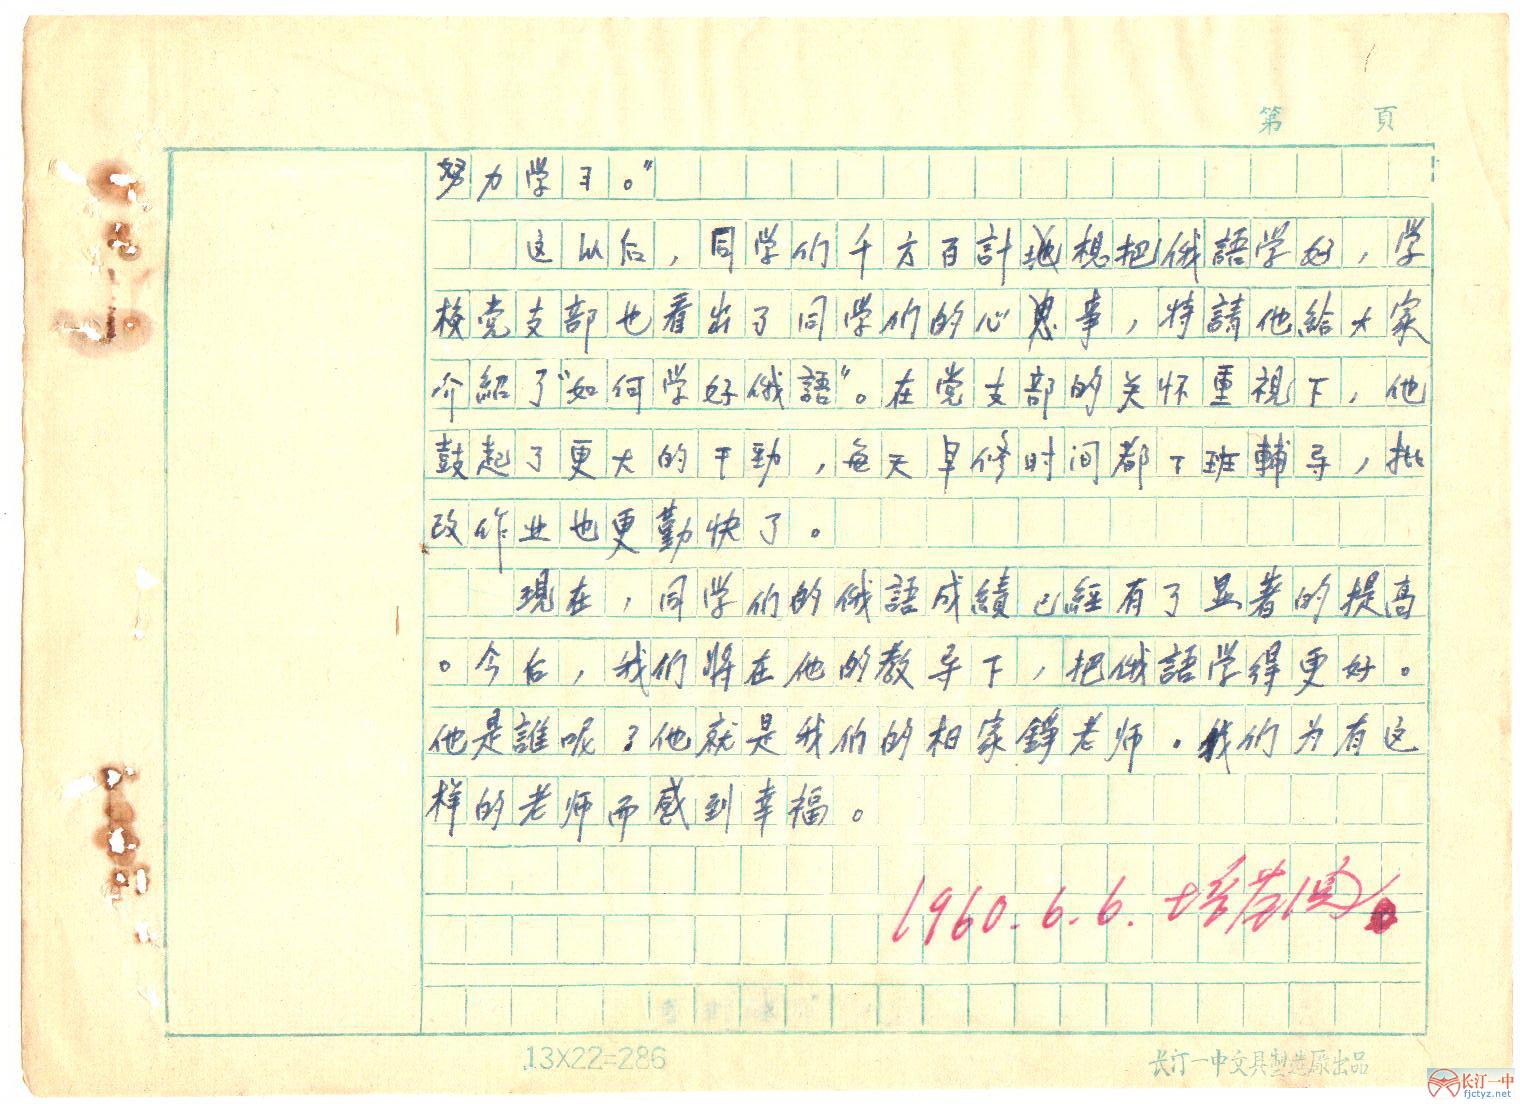 第 頁
努力学习。”
这以后，同学们千方百計地想把俄語学好，学
校党支部也看出了同学们的心思事，特請他給大家
介紹了“如何学好俄語”。在党支部的关怀重視下，他
鼓起了更大的干勁，每天早修时间都下班輔导，批
改作业也更勤快了。
現在，同学们的俄語成績已經有了显著的提高
。今后，我们將在他的教导下，把俄語学得更好。
他是誰呢？他就是我们的相家錚老师。我们为有这
样的老师而感到幸福。
1960.6.6.
13X22=286
长汀一中文具製造厰出品
长汀一中
fjctyz.net